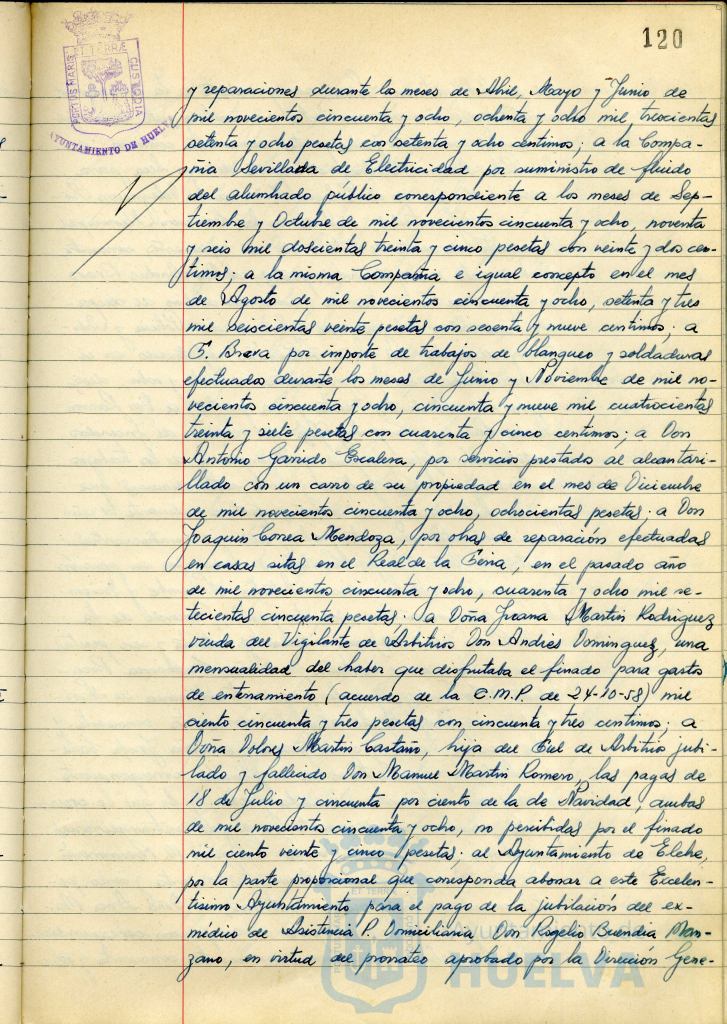 120
PORTUS MARIS ET TERRAE CUSTODIA
AYUNTAMIENTO DE HUELVA
y reparaciones durante los meses de Abril, Mayo y Junio de
mil novecientos cincuenta y ocho, ochenta y ocho mil trescientas
setenta y ocho pesetas con setenta y ocho centimos; a la Compa-
ñia Sevillana de Electricidad por suministro de fluido
del alumbrado público correspondiente a los meses de Sep-
tiembre y Octubre de mil novecientos cincuenta y ocho, noventa
y seis mil doscientas treinta y cinco pesetas con veinte y dos cen-
timos; a la misma Compañia e igual concepto en el mes
de Agosto de mil novecientos cincuenta y ocho, setenta y tres
mil seiscientas veinte pesetas con sesenta y nueve centimos; a
Brava por importe de trabajos de blanqueo y soldaduras
efectuados durante los meses de Junio y Noviembre de mil no-
vecientos cincuenta y ocho, cincuenta y nueve mil cuatrocientas
treinta y siete pesetas con cuarenta y cinco centimos; a Don
Antonio Garrido Escalera, por servicios prestados al alcantari-
llado con un carro de su propiedad en el mes de Diciembre
de mil novecientos cincuenta y ocho, ochocientas pesetas; a Don
Joaquin Correa Mendoza, por obras de reparación efectuadas
en casas sitas en el Real de la Feria, en el pasado año
de mil novecientos cincuenta y ocho, cuarenta y ocho mil se-
tecientas cincuenta pesetas; a Doña Juana Martin Rodriguez
viuda del Vigilante de Arbitrios Don Andrés Dominguez, una
mensualidad del haber que disfrutaba el finado para gastos
de enterramiento (acuerdo de la C.M.P. de 24-10-58) mil
ciento cincuenta y tres pesetas con cincuenta y tres centimos; a
Doña Dolores Martin Castaño, hija del Fiel de Arbitrios jubi-
lado y fallecido Don Manuel Martin Romero, las pagas de
18 de Julio y cincuenta por ciento de la de Navidad, ambas
de mil novecientos cincuenta y ocho, no percibidas por el finado
mil ciento veinte y cinco pesetas; al Ayuntamiento de Elche,
por la parte proporcional que corresponda abonar a este Excelen-
tisimo Ayuntamiento para el pago de la jubilación del ex-
médico de Asistencia P. Domiciliaria Don Rogelio Buendia Man-
zano, en virtud del prorrateo aprobado por la Dirección Gene-
HUELVA